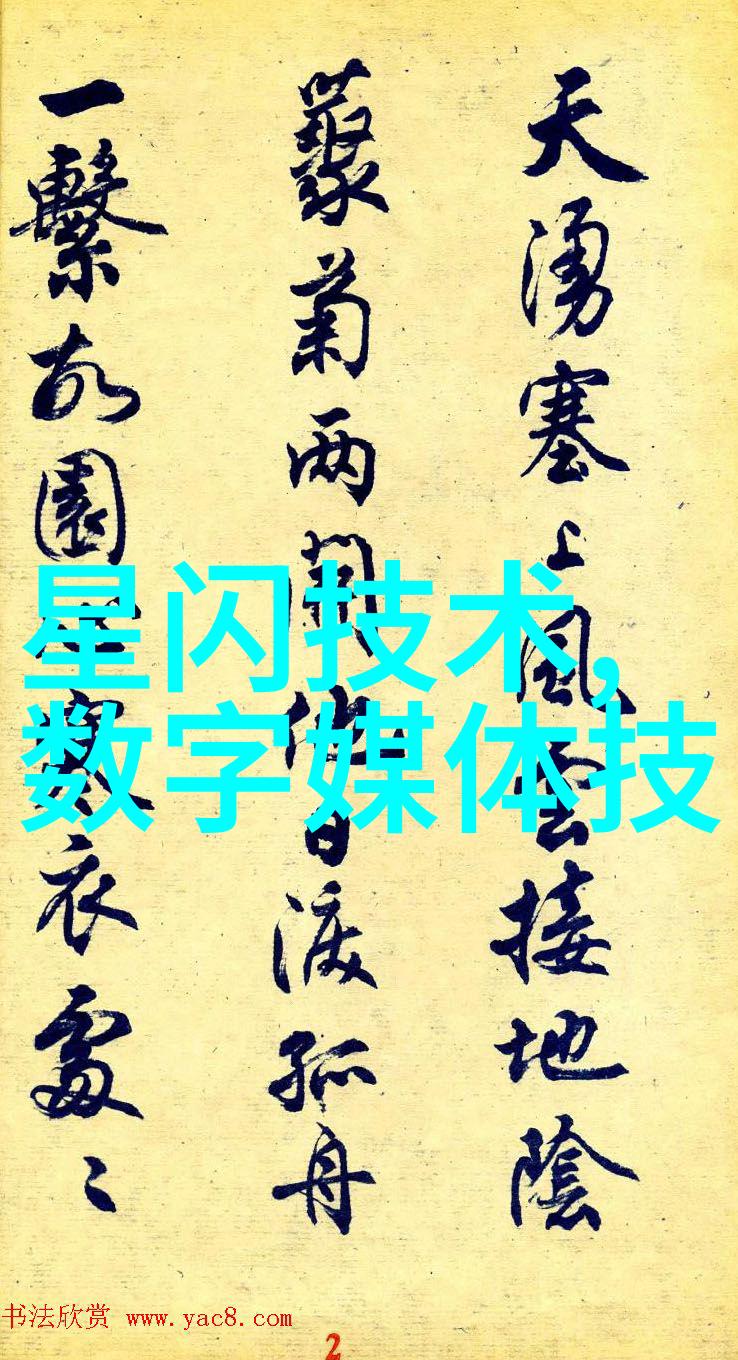 天湧塞上風雲接地陰
藂菊两開他日淚孤舟
一繫故園寒衣處〻
星闪技术,
数字媒体技
书法欣赏 www.yac8.com
2